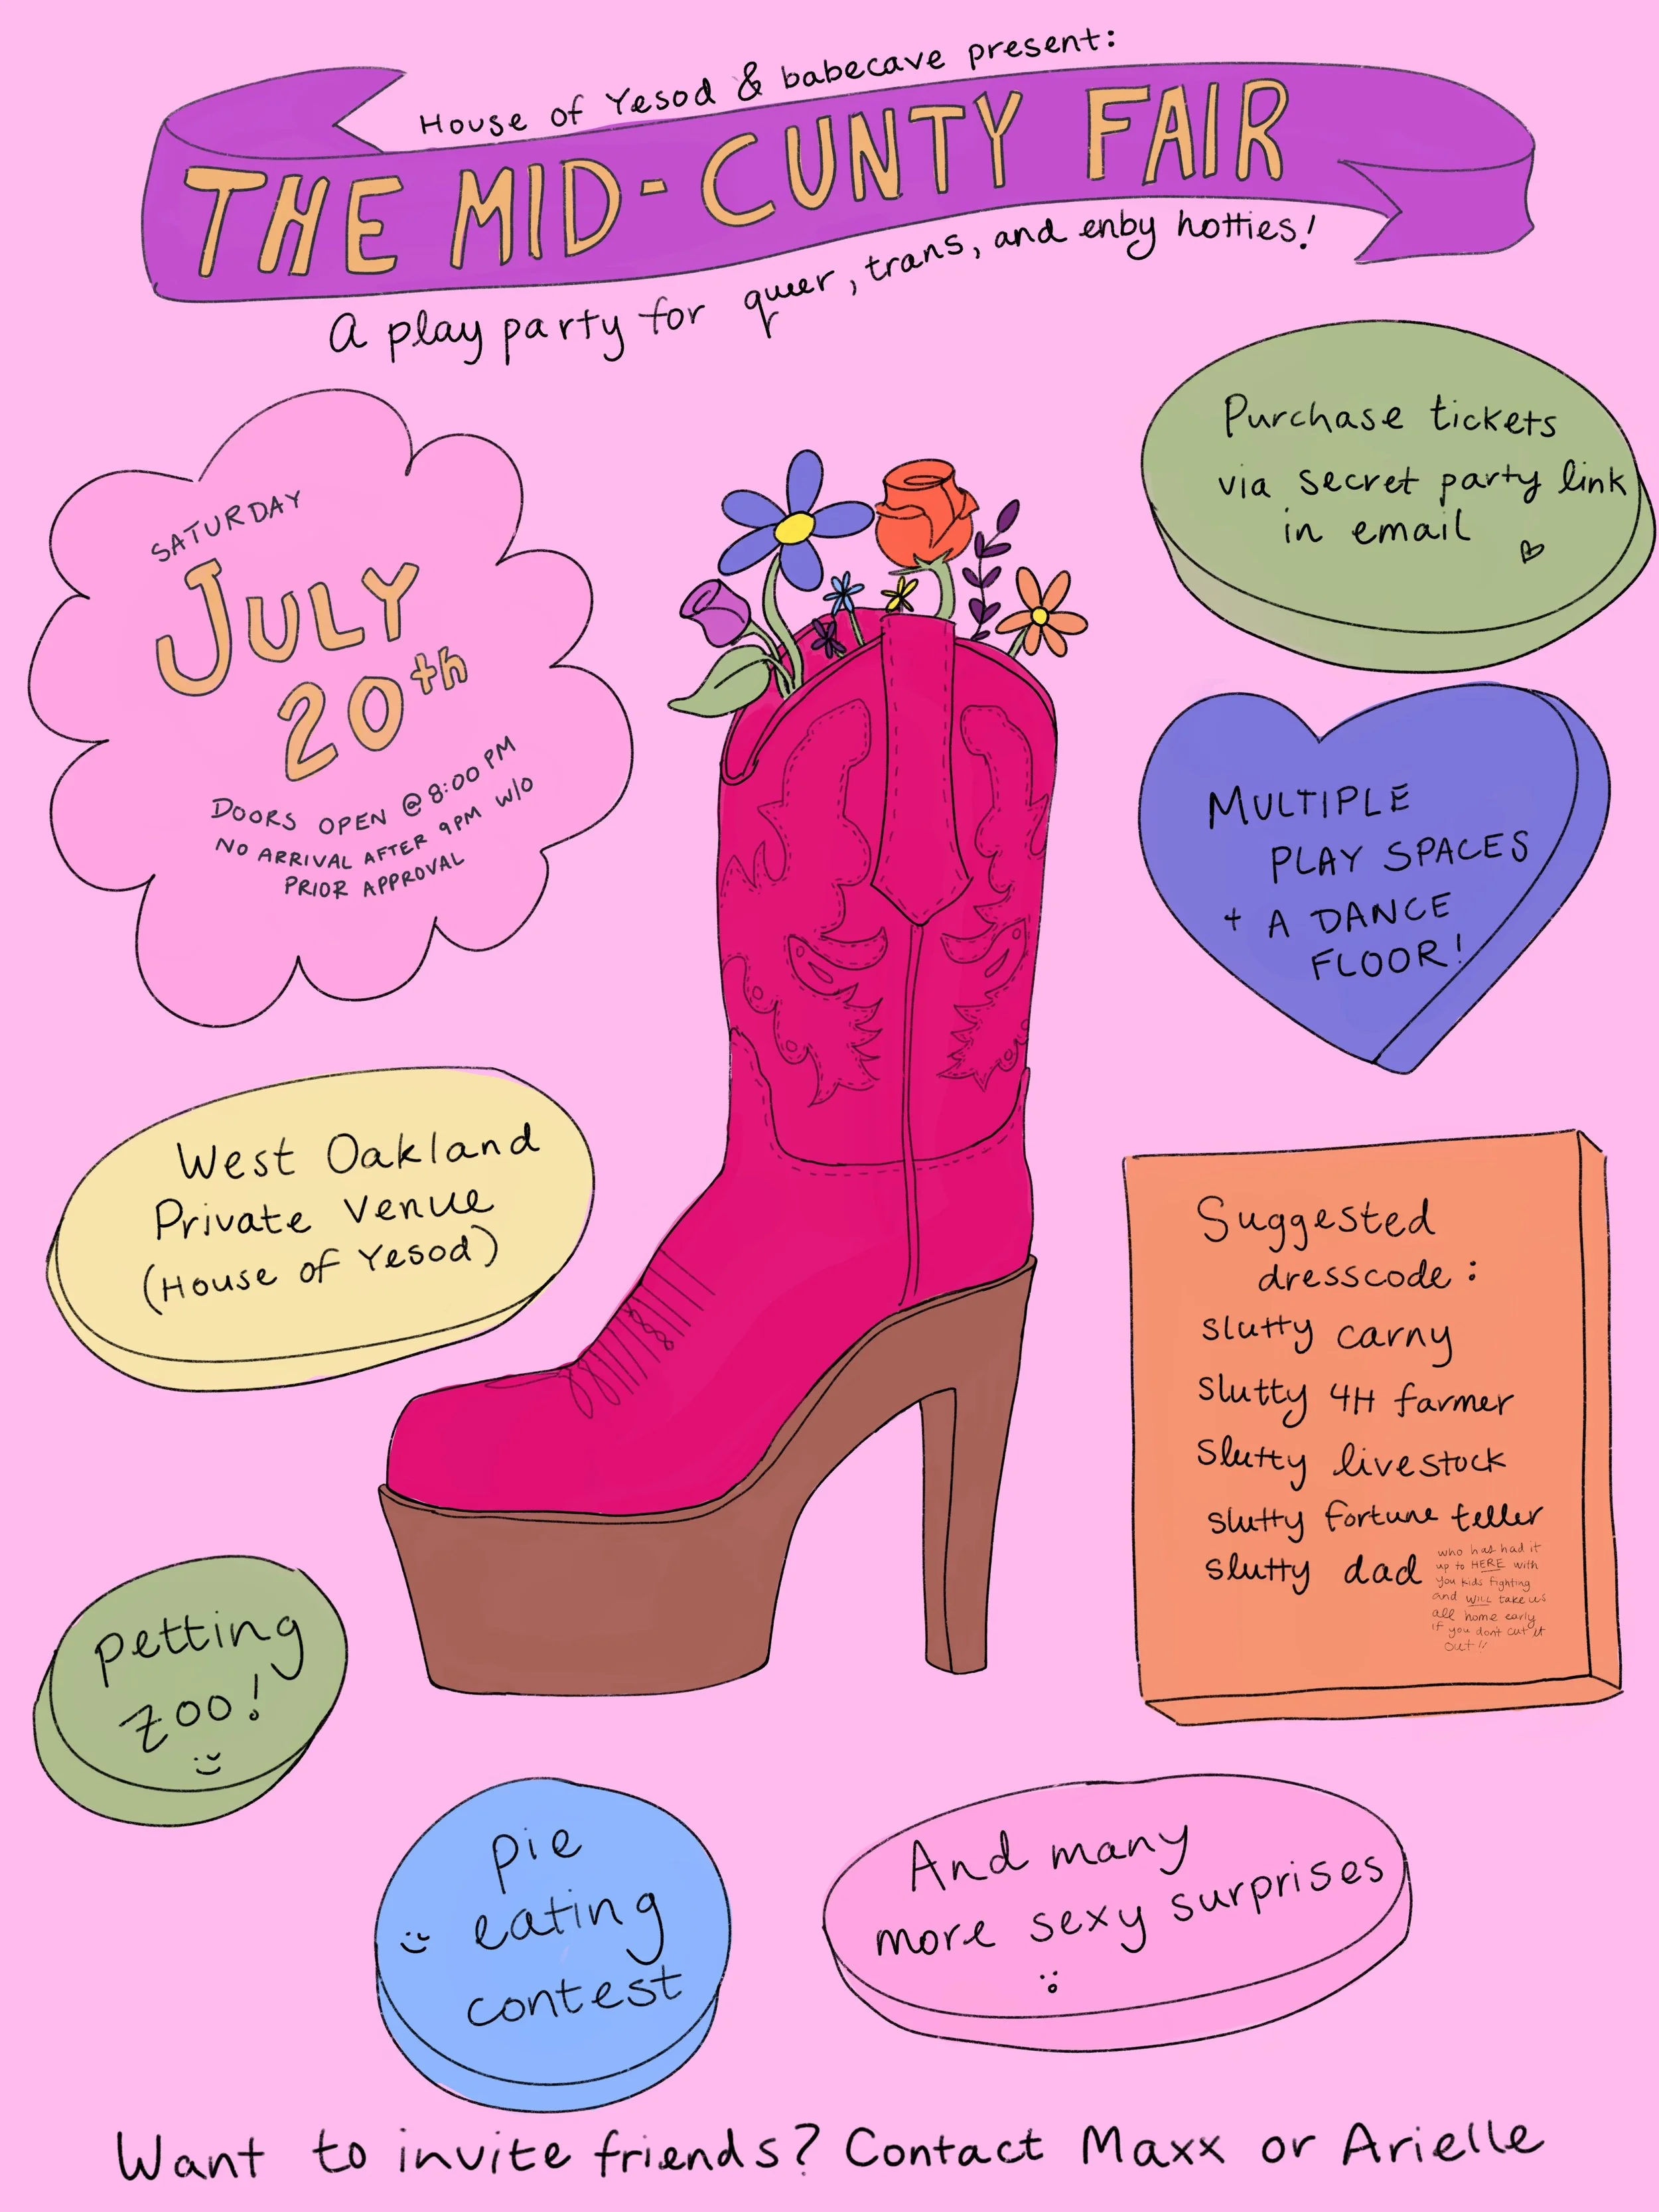 House of Yesod & babecave present:
THE MID-CUNTY FAIR
A play party for queer, trans, and enby hotties!
Purchase tickets
via secret party link
in email
SATURDAY
JULY
20th
DOORS OPEN @ 8:00 PM
NO ARRIVAL AFTER 9PM W/O
PRIOR APPROVAL
MULTIPLE
PLAY SPACES
+ A DANCE
FLOOR!
West Oakland
Private Venue
(House of Yesod)
Suggested
dresscode:
slutty carny
slutty 4H farmer
slutty livestock
slutty fortune teller
slutty dad
who has had it
up to HERE with
you kids fighting
and WILL take us
all home early
if you don't cut it
out!!
petting
zoo!
pie
eating
contest
And many
more sexy surprises
Want to invite friends? Contact Maxx or Arielle